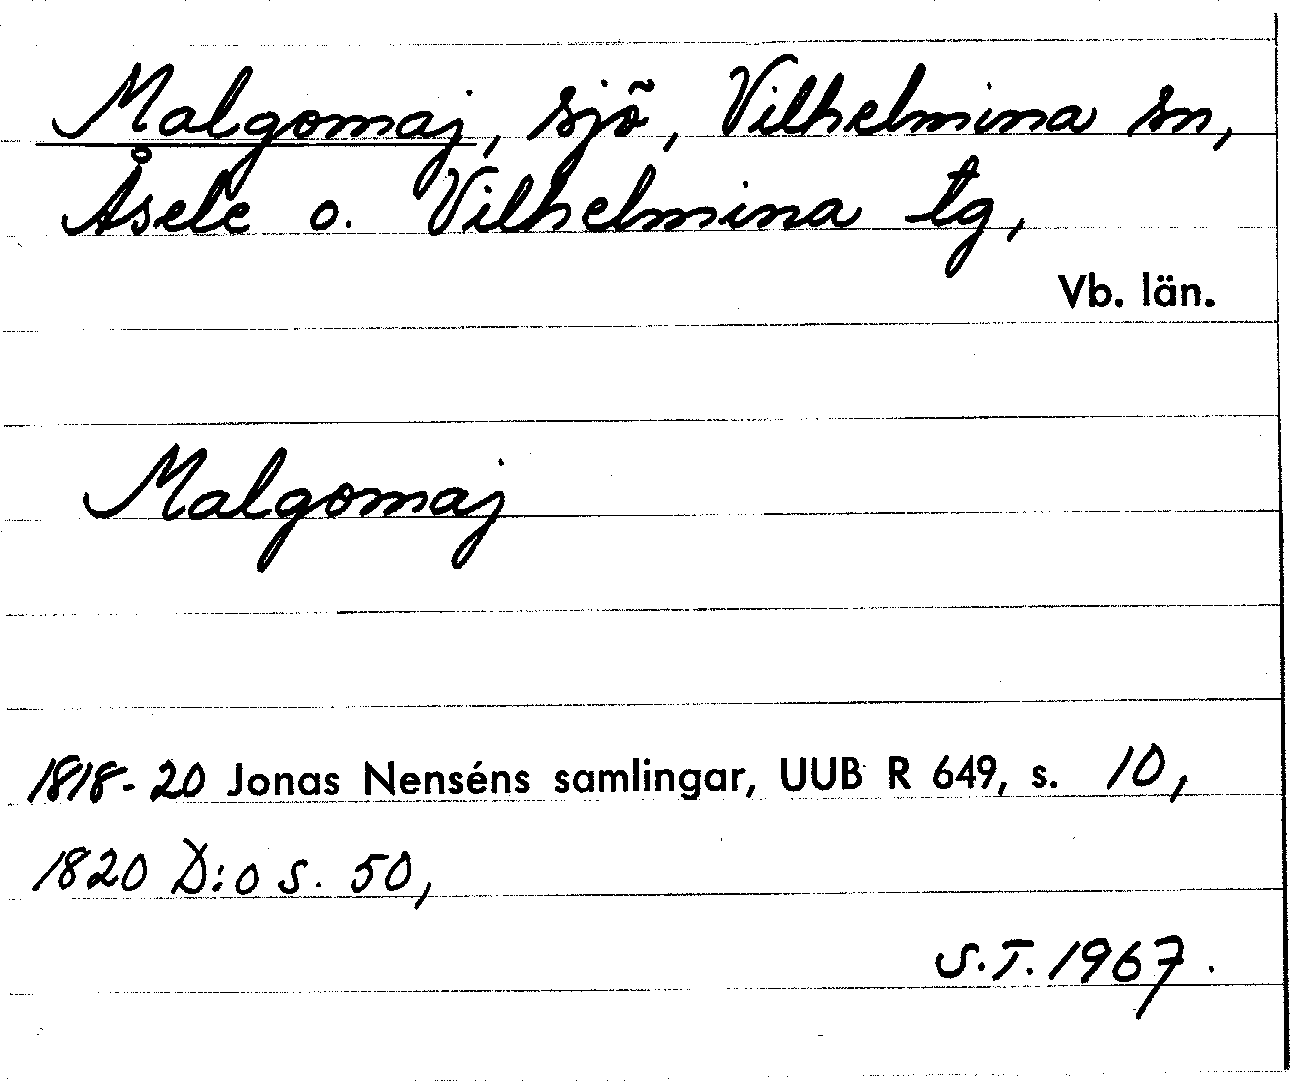 Malgomaj, sjö, Vilhelmina sn,
Åsele o. Vilhelmina tg,
Vb. län.
Malgomaj
1818-20 Jonas Nenséns samlingar, UUB R 649, s. 10,
1820 D:o s. 50,
S.T. 1967.